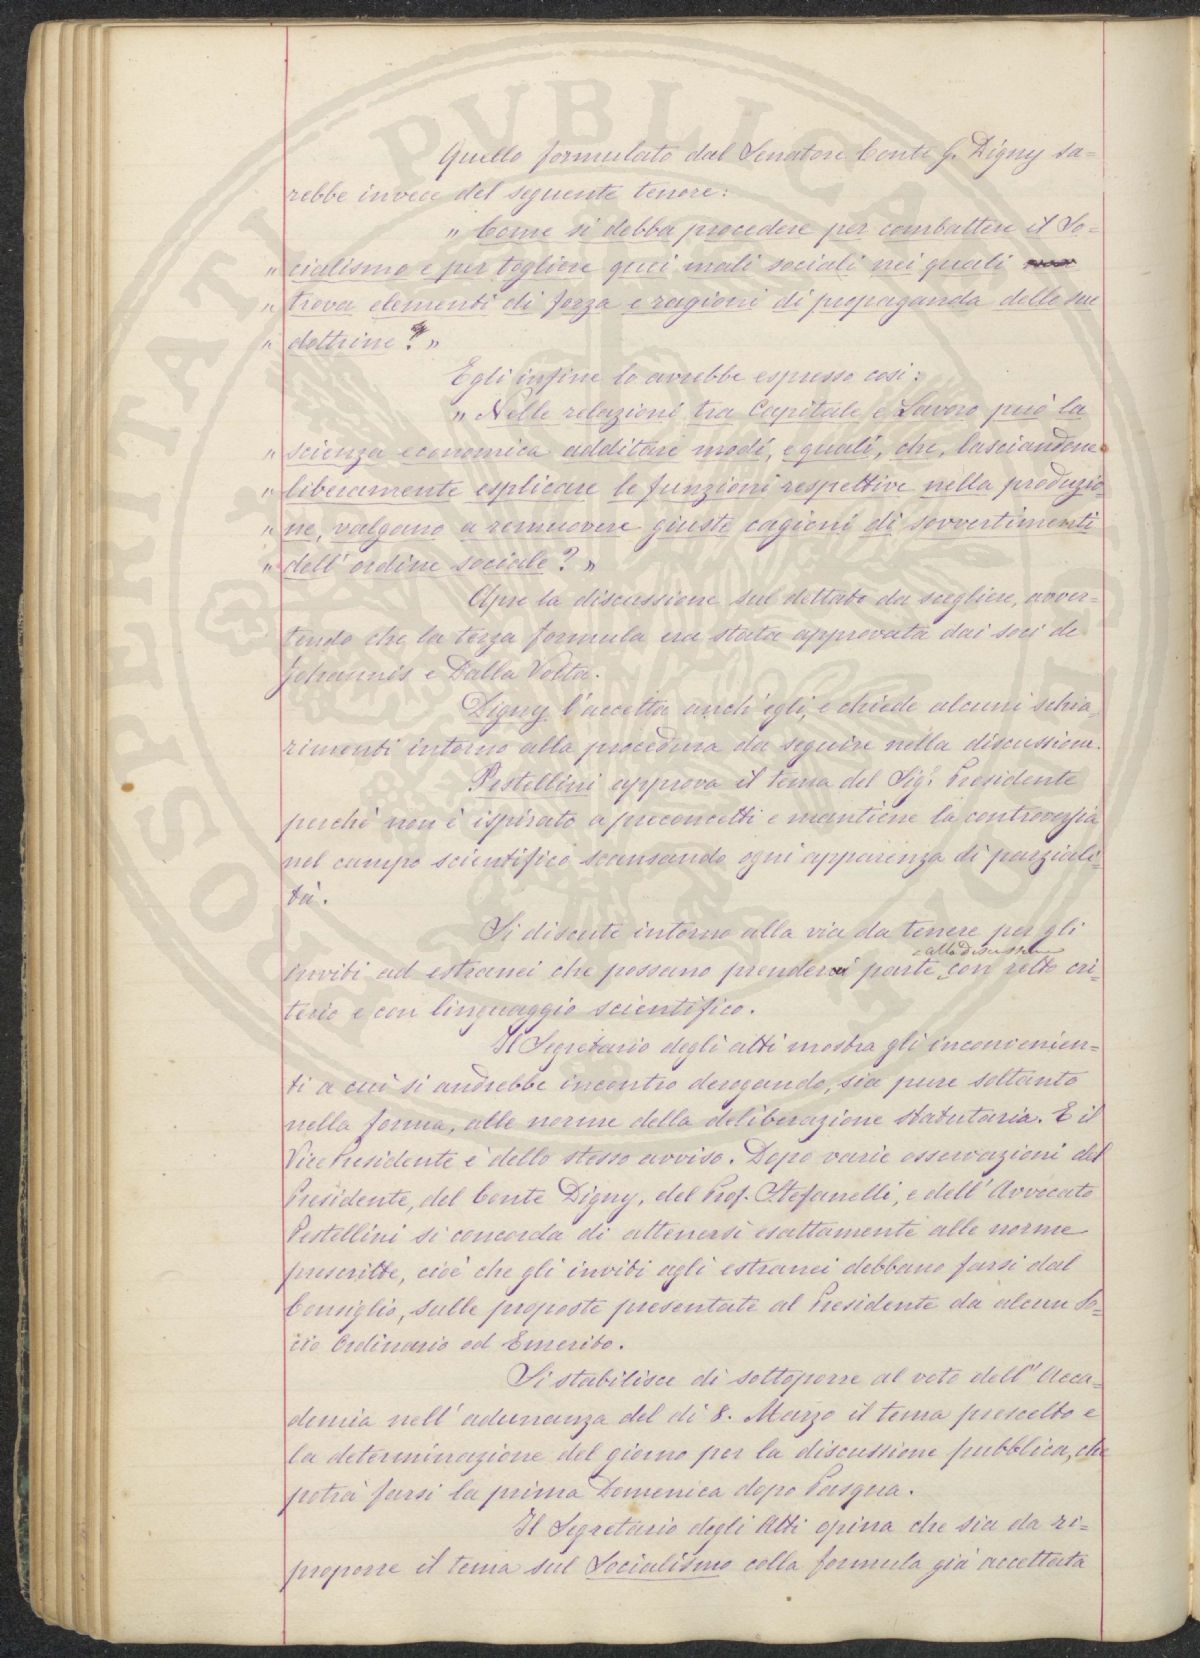 Quello formulato dal Senatore Conte G. Digny sa=
rebbe invece del seguente tenore:
„ Come si debba procedere per combattere il So=
„ cialismo e per togliere quei mali sociali nei quali
„ trova elementi di forza e ragioni di propaganda delle sue
„ dottrine? „
Egli infine lo avrebbe espresso così:
„ Nelle relazioni tra Capitale e Lavoro può la
„ scienza economica additare modi, e quali, che, lasciandone
„ liberamente esplicare le funzioni respettive nella produzio=
„ ne, valgano a remuovere giuste cagioni di sovvertimenti
„ dell'ordine sociale? „
Apre la discussione sul dettato da scegliere, avver=
tendo che la terza formula era stata approvata dai soci de
Johannis e Dalla Volta.
Digny l'accetta anch'egli, e chiede alcuni schia=
rimenti intorno alla procedura da seguire nella discussione.
Pestellini approva il tema del Sigr. Presidente
perchè non è ispirato a preconcetti e mantiene la controversia
nel campo scientifico scansando ogni apparenza di parziali=
tà.
Si discute intorno alla via da tenere per gli
alla discussione
inviti ad estranei che possano prendere parte con retto cri=
terio e con linguaggio scientifico.
Il Segretario degli atti mostra gli inconvenien=
ti a cui si andrebbe incontro derogando, sia pure soltanto
nella forma, alle norme della deliberazione statutaria. E il
Vice Presidente è dello stesso avviso. Dopo varie osservazioni del
Presidente, del Conte Digny, del Prof. Stefanelli, e dell'Avvocato
Pestellini si concorda di attenersi esattamente alle norme
prescritte, cioè che gli inviti agli estranei debbano farsi dal
Consiglio, sulle proposte presentate al Presidente da alcun So=
cio Ordinario od Emerito.
Si stabilisce di sottoporre al voto dell'Acca=
demia nell'adunanza del dì 8. Marzo il tema prescelto e
la determinazione del giorno per la discussione pubblica, che
potrà farsi la prima Domenica dopo Pasqua.
Il Segretario degli Atti opina che sia da ri=
proporre il tema sul Socialismo colla formula già accettata